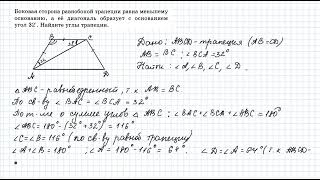 Боковая сторона равнобокой трапеции равна меньшему
основанию, а её диагональ образует с основанием
угол 32°. Найдите углы трапеции.
Дано: ABCD-трапеция (AB=CD)
AB = BC; ∠BCA = 32°
Найти: ∠A, ∠B, ∠C,
∠D.
B C
32°
A
△ABC-равнобедренный, т.к AB=BC.
По св-ву ∠BAC = ∠BCA = 32°
По т-ме о сумме углов △ABC: ∠BAC+∠BCA+∠ABC = 180°
∠ABC = 180°-(32°+32°) = 116°
∠C=∠B=116° (по св-ву равноб трапеции)
∠A+∠B = 180°; ∠A = 180°-116°= 64°. ∠D=∠A=64° (т.к ABCD-